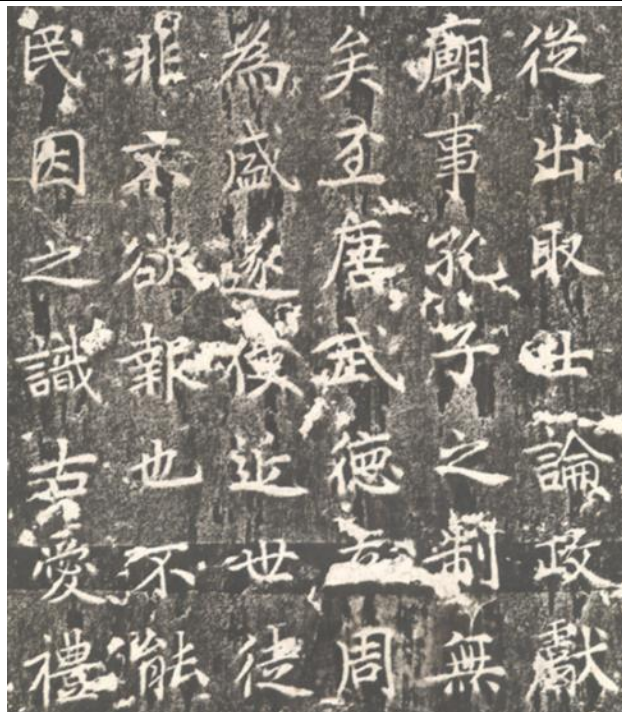 從出取士論政獻
廟事孔子之制無
矣至唐武德周
為盛遂使近世徒
非不欲報也不能
民因之識古愛禮